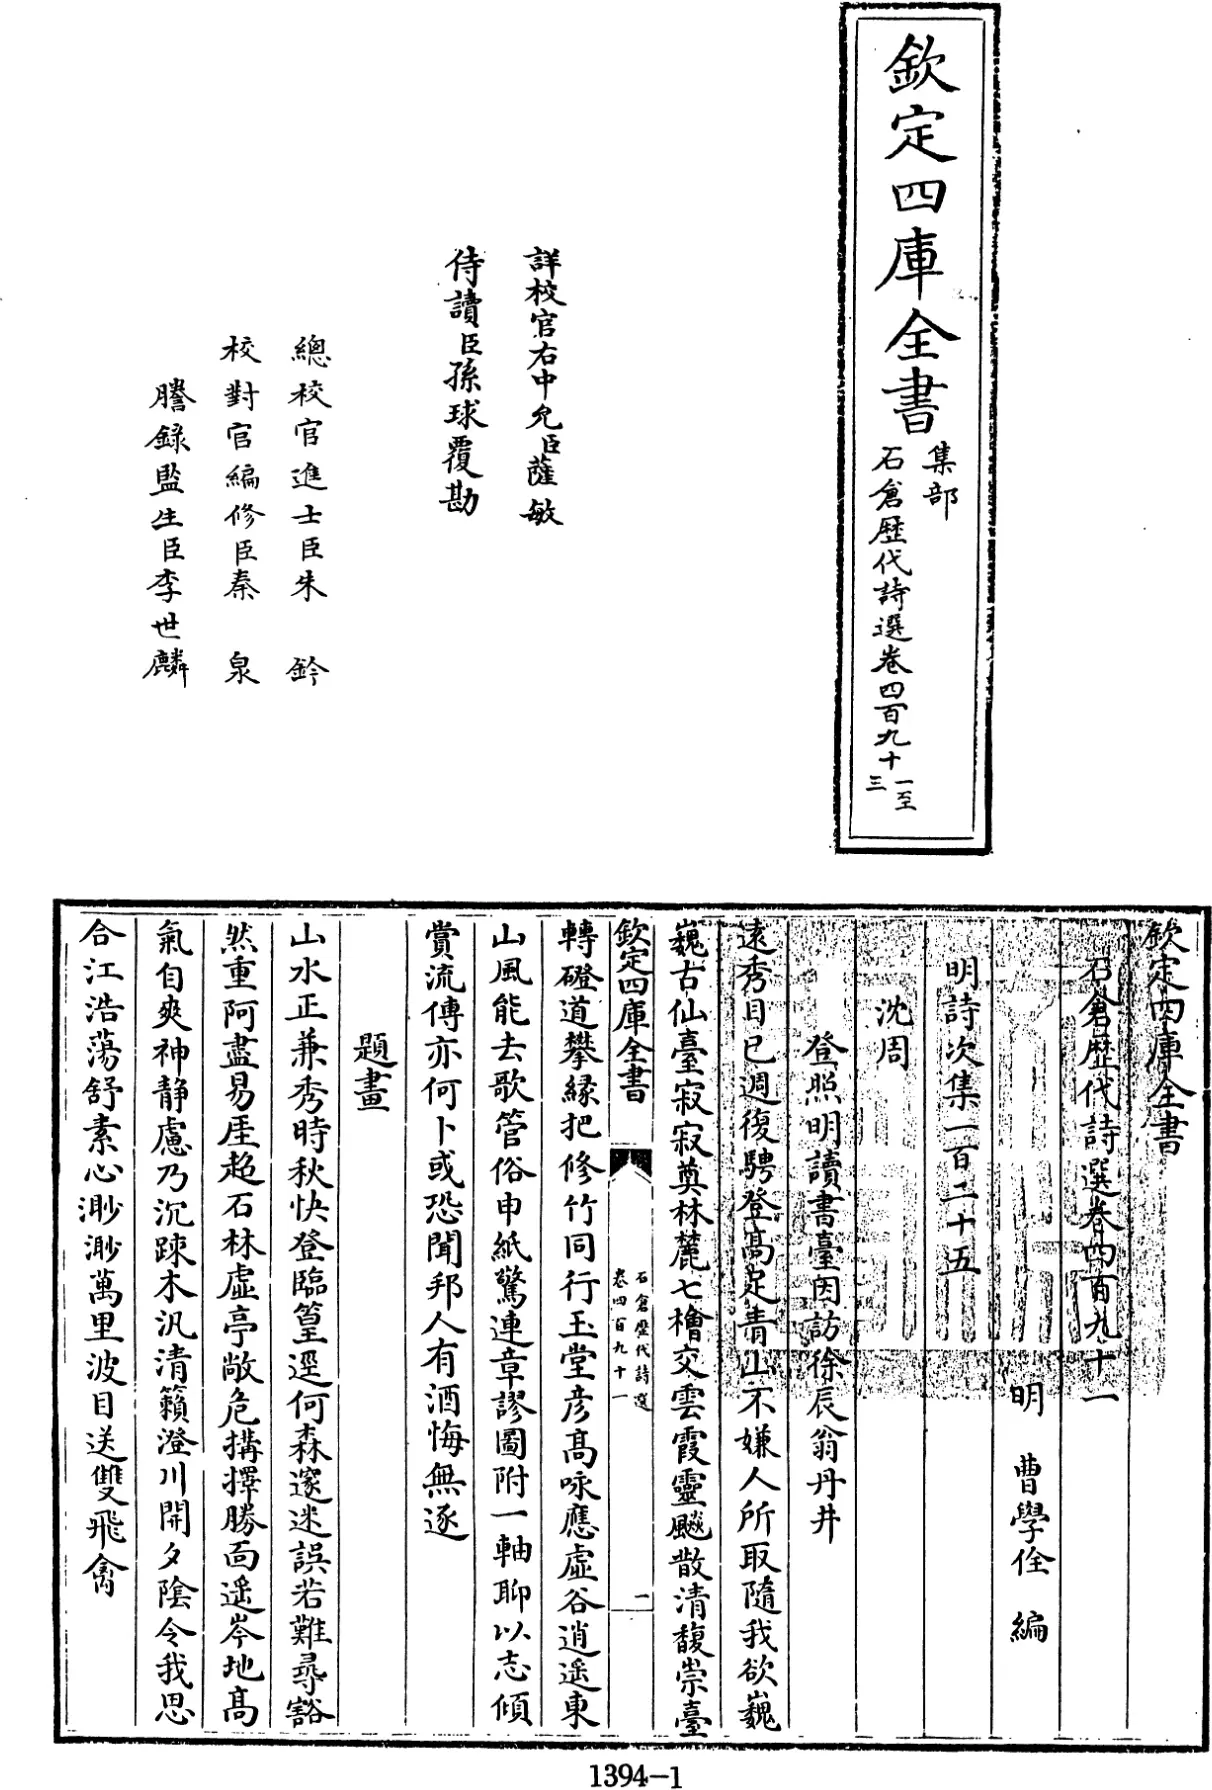 欽定四庫全書
集部
石倉歴代詩選卷四百九十一至三
詳校官右中允臣薩敏
侍讀臣孫球覆勘
總校官進士臣朱鈐
校對官編修臣秦泉
謄錄監生臣李世麟
欽定四庫全書
石倉歴代詩選卷四百九十一
明 曹學佺 編
明詩次集一百二十五
沈周
登照明讀書臺因訪徐辰翁丹井
遠秀目已週復騁登高足青山不嫌人所取隨我欲巍
巍古仙臺寂寂奠林麓七檜交雲霞靈飈散清馥崇臺
欽定四庫全書
石倉歴代詩選
卷四百九十一
二
轉磴道攀緣把修竹同行玉堂彦高咏應虛谷逍遥東
山風能去歌管俗申紙驚連章謬圖附一軸聊以志傾
賞流傳亦何卜或恐聞邦人有酒悔無逐
題畫
山水正兼秀時秋快登臨篁逕何森邃迷誤若難尋豁
然重阿盡易厓趍石林虛亭敞危搆擇勝面遥岑地高
氣自爽神靜慮乃沉踈木汎清籟澄川開夕陰令我思
合江浩蕩舒素心渺渺萬里波目送雙飛禽
1394-1